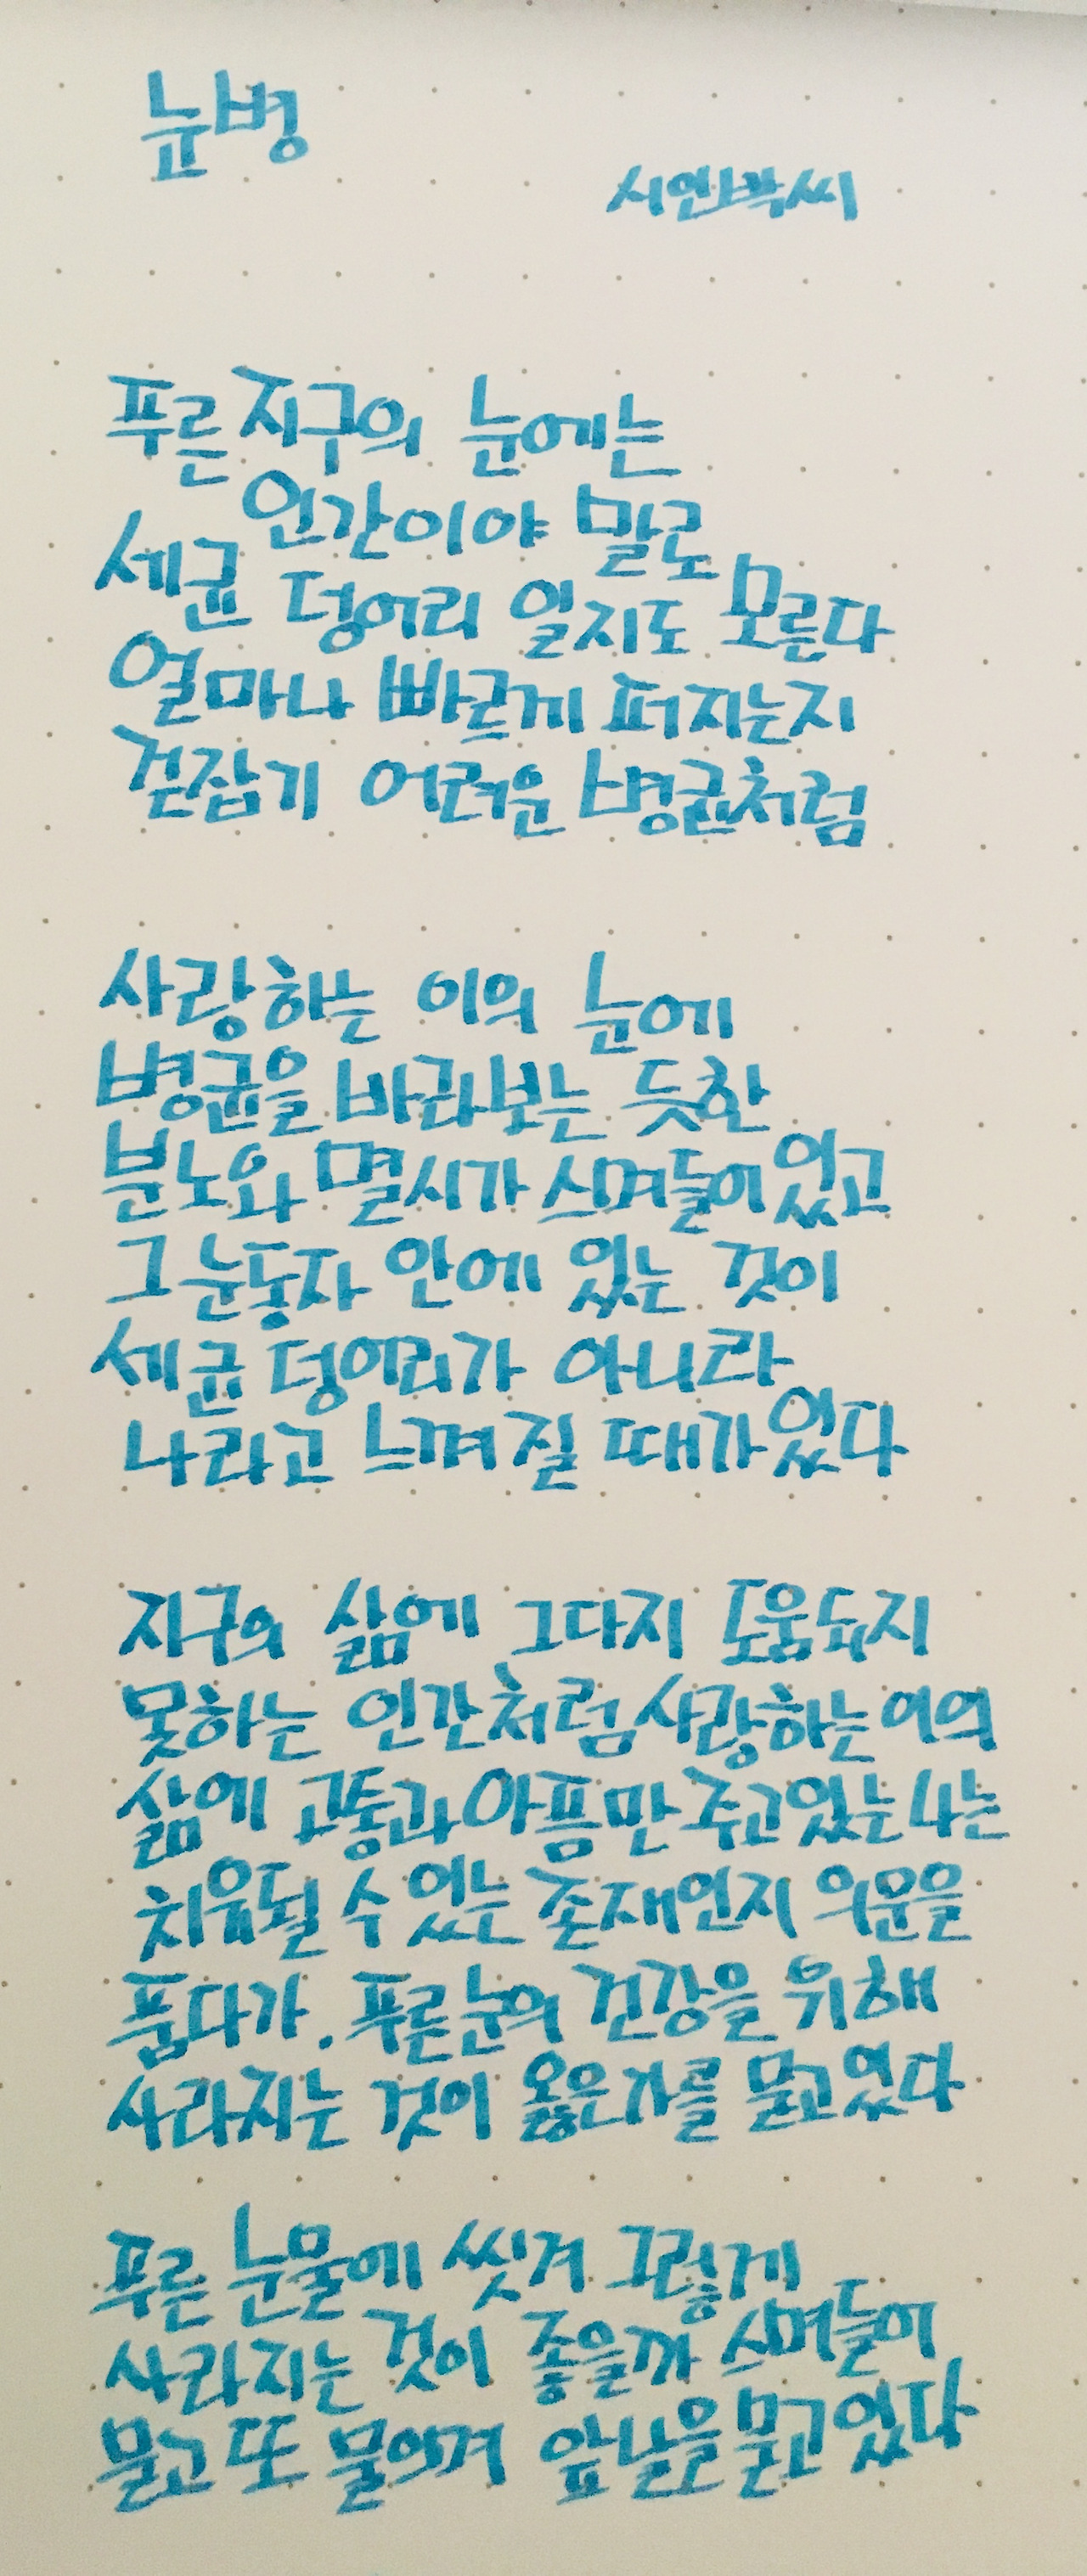 눈병
시인박씨
푸른 지구의 눈에는
인간이야 말로
세균 덩어리 일지도 모른다
얼마나 빠르게 퍼지는지
걷잡기 어려운 병균처럼
사랑하는 이의 눈에
병균을 바라보는 듯한
분노와 멸시가 스며들어있고
그 눈동자 안에 있는 것이
세균 덩어리가 아니라
나라고 느껴질 때가있다
지구의 삶에 그다지 도움되지
못하는 인간처럼 사랑하는 이의
삶에 고통과 아픔만 주고있는 나는
치유될 수 있는 존재인지 의문을
품다가. 푸른눈의 건강을 위해
사라지는 것이 옳은가를 묻고있다
푸른 눈물에 씻겨 그렇게
사라지는 것이 좋을까 스며들어
묻고 또 물으며 앞날을 묻고있다